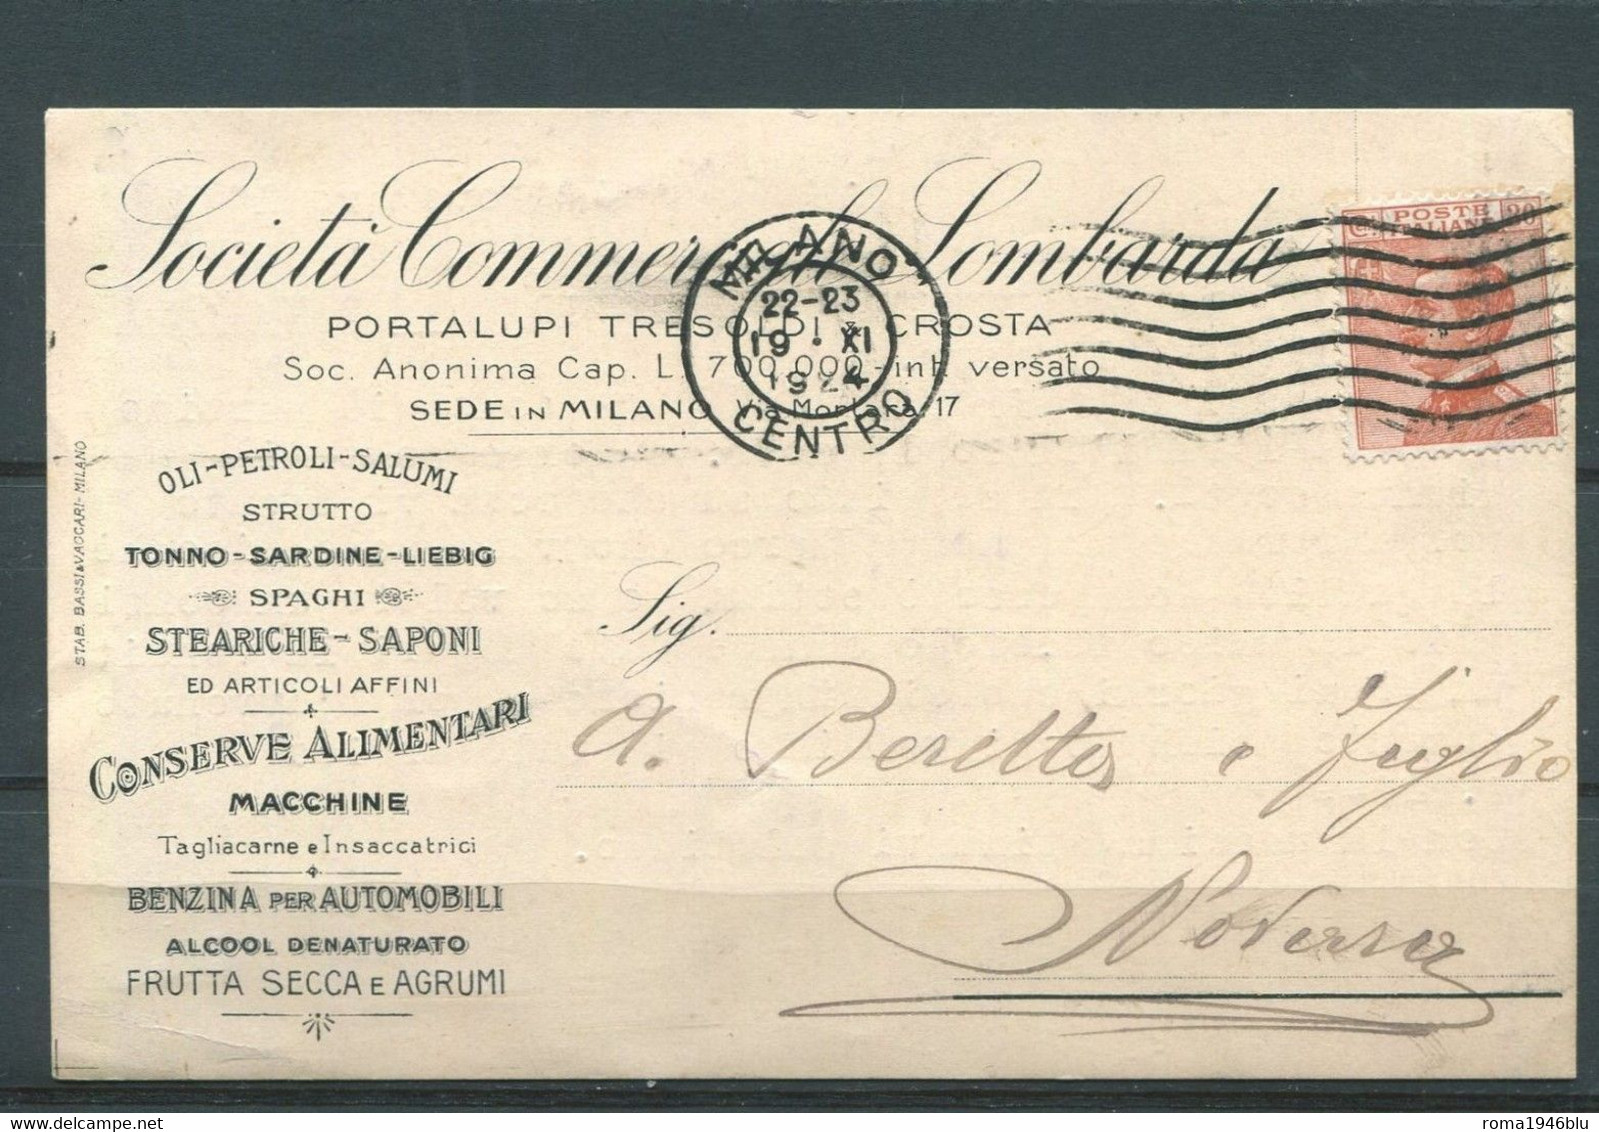 Società Commerciale Lombarda
PORTALUPI TRESOLDI & CROSTA
Soc. Anonima Cap. L. 700.000 - int. versato
SEDE IN MILANO Via Mortara 17
MILANO
22-23
19 · XI
1924
CENTRO
POSTE
ITALIANE
20
OLI-PETROLI-SALUMI
STRUTTO
TONNO-SARDINE-LIEBIG
SPAGHI
STEARICHE-SAPONI
ED ARTICOLI AFFINI
CONSERVE ALIMENTARI
MACCHINE
Tagliacarne e Insaccatrici
BENZINA PER AUTOMOBILI
ALCOOL DENATURATO
FRUTTA SECCA E AGRUMI
STAB. BASSI & VACCARI - MILANO
Sig.
A. Beretta e Figlio
delcampe.net
roma1946blu